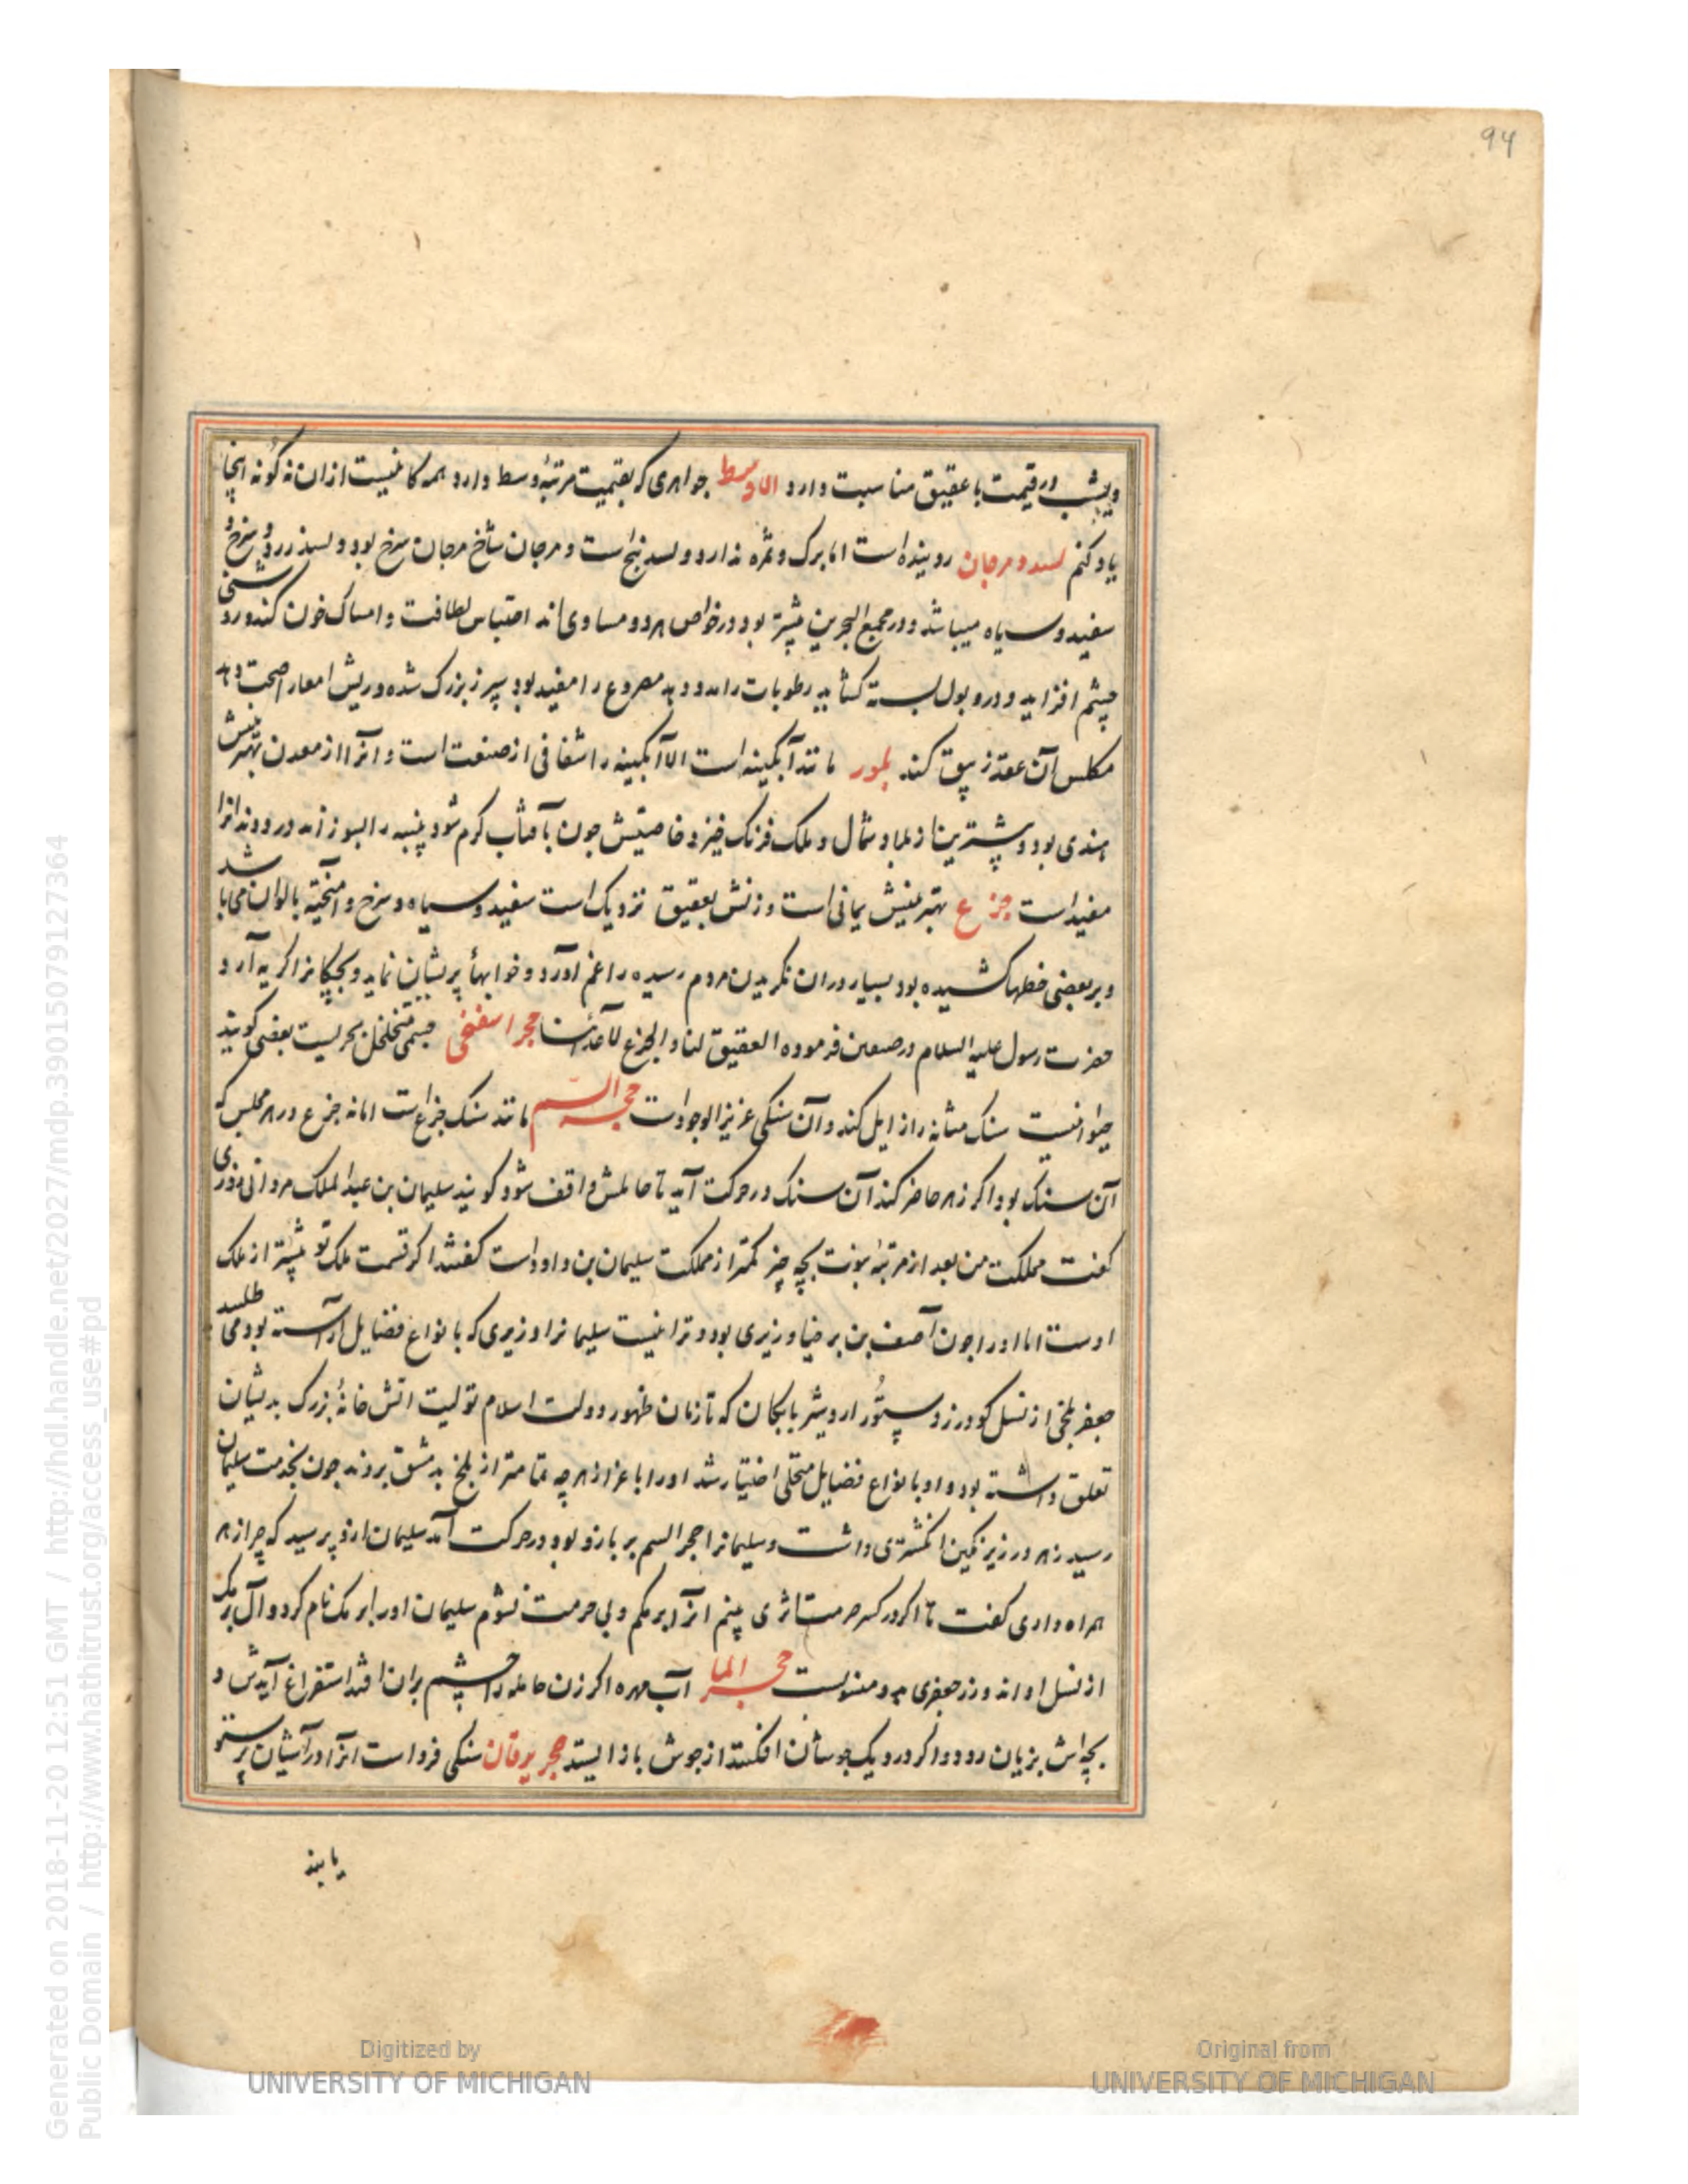 94
ویشب در قیمت با عقیق مناسبت دارد الاوسط جواهری که بقیمت مرتبهٔ وسط دارد همه کانیست ازان نه گونه اینجا
یاد کنم بسد و مرجان روینده است اما برک و ثمره ندارد و بسد بیخ است و مرجان شاخ مرجان سرخ بود و بسد زرد و سرخ و
سفید و سیاه میباشد و در مجمع البحرین بیشتر بود در خواص هر دو مساوی اند احتباس لطافت و امساک خون کند و روشنی
چشم افزاید و درو بول بسته کشاید رطوبات را مدد دهد مصروع را مفید بود سپرز بزرک شده و ریش امعا را صحت دهد
مکلس آن عقد زیبق کند بلور مانند آبکینه است الا آبکینه را شفافی از صنعت است و آنرا از معدن بهترینش
هندی بود و بیشترین از بلاد شمال و ملک فرنک خیزد خاصیتش چون بآفتاب کرم شود پنبه را بسوزاند درد دندانرا
مفید است جزع بهترینش یمانی است وزنش بعقیق نزدیک است سفید و سیاه و سرخ و آمیخته بالوان می باشد
و بر بعضی خطها کشیده بود بسیار دران نکریدن مردم رسیده را غم آورد و خوابهاٴ پریشان نماید و بچکانرا کریه آرد
حضرت رسول علیه السلام در صفین فرموده العقیق لنا و الجزع لاعدائنا حجر اسفنجی جسمی متخلخل بحریست بعضی کویند
حیوانیست سنک مثانه را زایل کند و آن سنکی عزیز الوجود است حجر السم مانند سنک جزع است اما نه جزع در هر مجلس که
آن سنک بود اکر زهر حاضر کند آن سنک در حرکت آید تا حاملش واقف شود کویند سلیمان بن عبد الملک مروانی روزی
کفت مملکت من بعد از مرتبهٔ نبوت بچه چیز کمتر از مملکت سلیمان بن داود است کفتند اکر قسمت ملک تو بیشتر از ملک
اوست اما او را چون آصف بن برخیا وزیری بود و ترا نیست سلیمانرا وزیری که بانواع فضایل آراسته بود می طلبید
جعفر بلخی از نسل کودرز دستور اردشیر بابکان که تا زمان ظهور دولت اسلام تولیت آتش خانهٔ بزرک بدیشان
تعلق داشته بود و او بانواع فضایل متحلی اختیار شد او را باعزاز هر چه تمامتر از بلخ بدمشق بردند چون بخدمت سلیمان
رسید زهر در زیر نکین انکشتری داشت و سلیمانرا حجر السم بر بازو بود در حرکت آمد سلیمان ازو پرسید که چرا زهر
همراه داری کفت تا اکر در کسر حرمت اثری بینم آنرا برمکم و بی حرمت نشوم سلیمان او را برمک نام کرد و آل برمک
از نسل او اند و زر جعفری بدو منسوبست حجر الما آب مهره اکر زن حامله را چشم بران افتد استفراغ آیدش و
بچه اش بزیان رود و اکر در دیک جوشان افکنند از جوش باز ایستد حجر یرقان سنکی خرد است آنرا در آشیان پرستو
یابند
Generated on 2018-11-20 12:51 GMT / http://hdl.handle.net/2027/mdp.39015079127364
Public Domain / http://www.hathitrust.org/access_use#pd
Digitized by
UNIVERSITY OF MICHIGAN
Original from
UNIVERSITY OF MICHIGAN